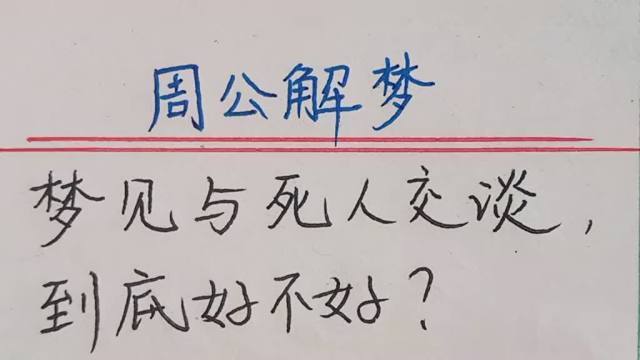 周公解梦
梦见与死人交谈，
到底好不好？